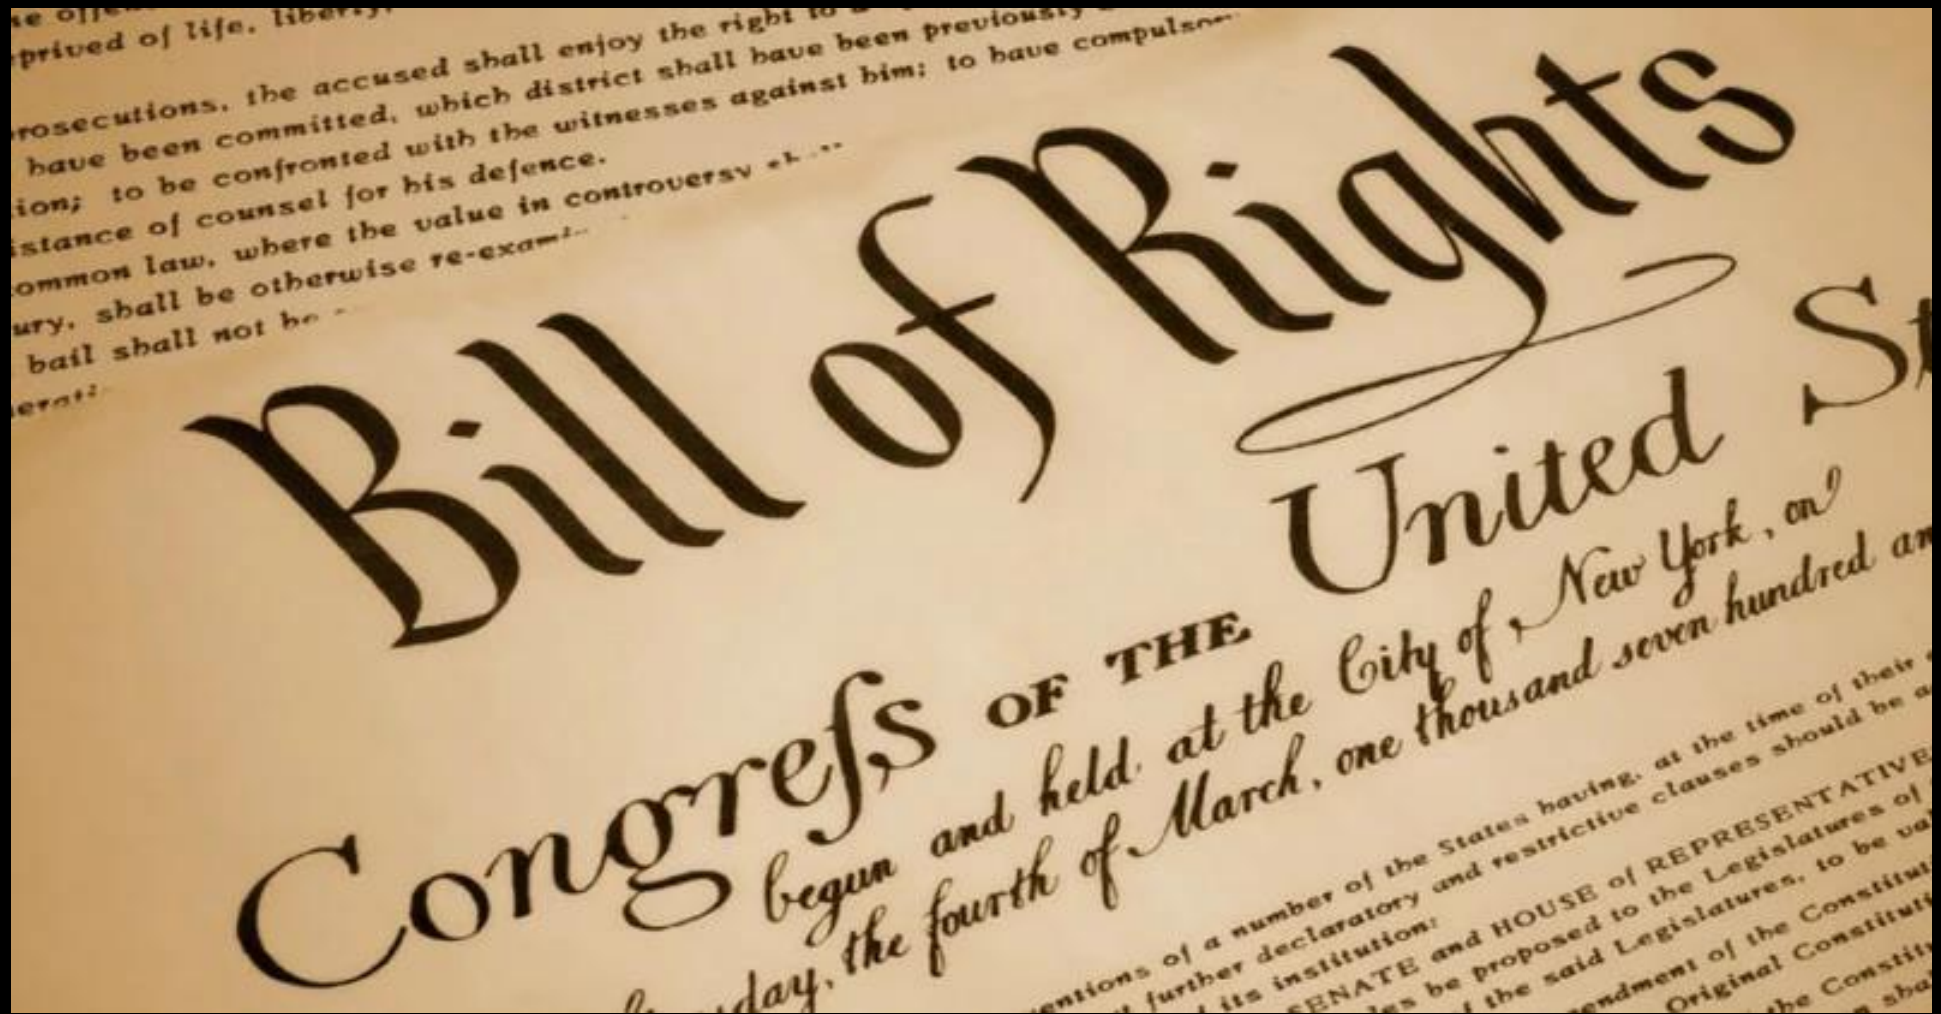 prived of life, liberty,
rosecutions, the accused shall enjoy the right to a
have been committed, which district shall have been previously
ion; to be confronted with the witnesses against him; to have
istance of counsel for his defence.
ommon law, where the value in controversy
ury, shall be otherwise
bail shall not be
Bill of Rights
Congreſs OF THE United St
begun and held at the City of New York, on
the fourth of March, one thousand seven hundred an
entions of a number of the States having, at the time of their
further declaratory and restrictive clauses should be a
its institution:
SENATE and HOUSE of REPRESENTATIVE
les be proposed to the Legislatures of
the said Legislatures, to be val
endment of the Constitut
Original Constituti
the Constitu
sha